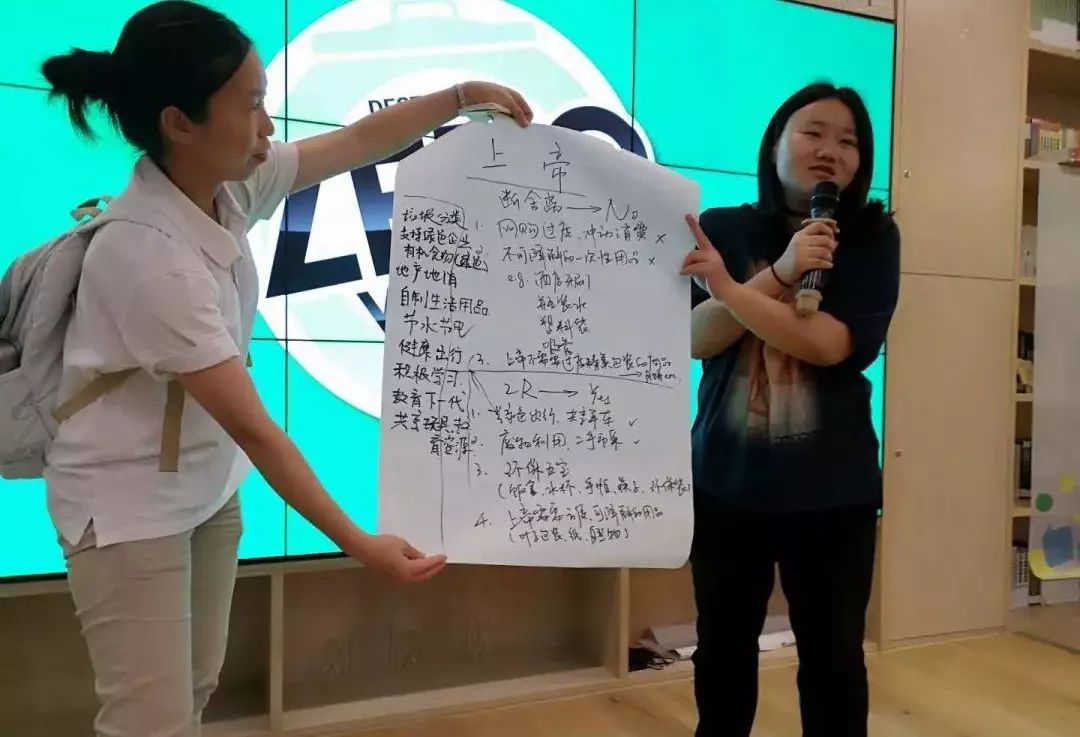 DEST
ZERO
上帝
断舍离→No
1. 网购过度、冲动消费 ×
不可降解的一次性用品 ×
e.g. 酒店牙刷
瓶装水
塑料袋
吸管
3. 上帝不需要过度精美包装的产品
垃圾分类
支持绿色企业
有机食物(绿色)
地产地消
自制生活用品
节水节电
健康出行
积极学习
教育下一代
共享玩具、教
育资源
2R→Yes
1. 绿色出行、共享单车 ✓
2. 废物利用、二手市集 ✓
3. 环保五宝
(饭盒、水杯、手帕、筷子、环保袋)
4. 上帝需要可降解的用品
(叶子包装、纸、植物)